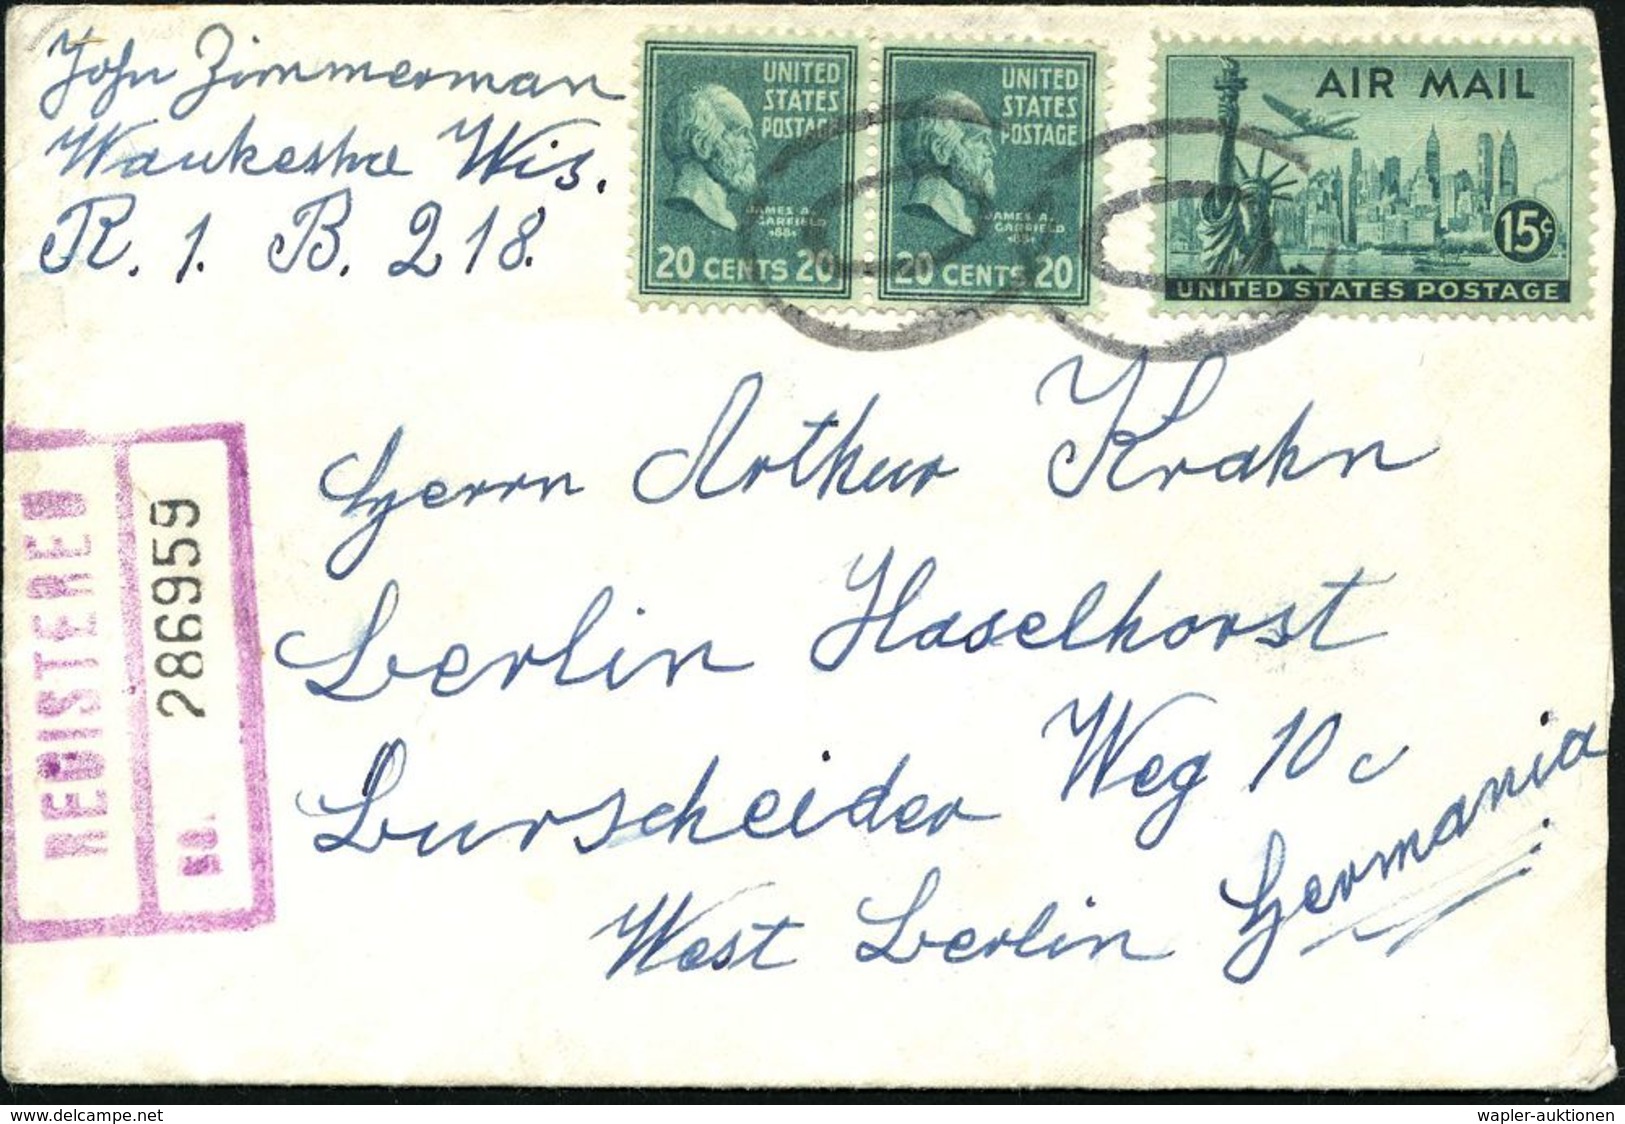 John Zimmerman
Waukesha Wis.
R. 1. B. 218.
UNITED
STATES
POSTAGE
JAMES A.
GARFIELD
1881
20 CENTS 20
UNITED
STATES
POSTAGE
JAMES A.
GARFIELD
1881
20 CENTS 20
AIR MAIL
15¢
UNITED STATES POSTAGE
REGISTERED
NO. 286959
Herrn Arthur Krahn
Berlin Haselhorst
Burscheider Weg 10 c
West Berlin Germania
www.delcampe.net
wapler-auktionen